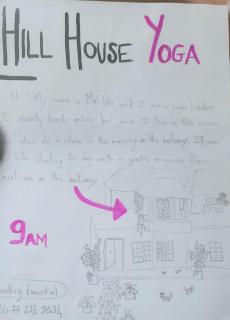 HILL HOUSE YOGA
Hi! My name is Matilda and I am a yoga teacher
I usually teach online but since I live in this house
also do a class in the morning on the balcony. If you
like starting the day with a gentle vinyasa flow,
meet me on the balcony
9AM
Booking Essential